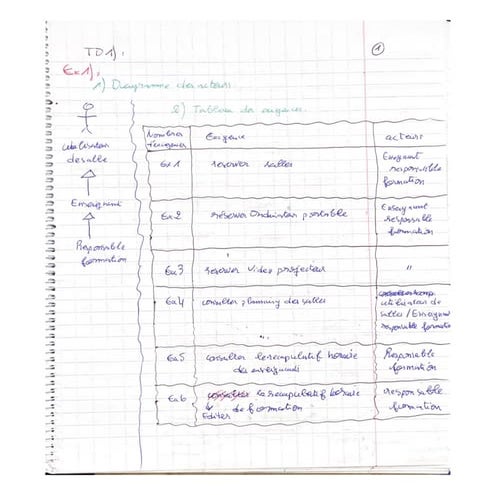 TD 1).
1
Ex 1).
1) Diagramme des acteurs
2) Tableau de exigence.
Utilisateur
de salle
Enseignant
Responsable
formation
Nombres
Exigence
acteurs
Ex 1
reserver salles
Enseignant
responsable
formation
Ex 2
réserver Ordinateur portable
Enseignant
responsable
formation
Ex 3
reserver video projecteur
"
Ex 4
consulter planning des salles
utilisateur de
salles / Enseignant
responsable formation
Ex 5
consulter le recapulatif horaire
des enseignants
Responsable
formation
Ex 6
consulter le recapulatif horaire
de formation
Editer
responsable
formation